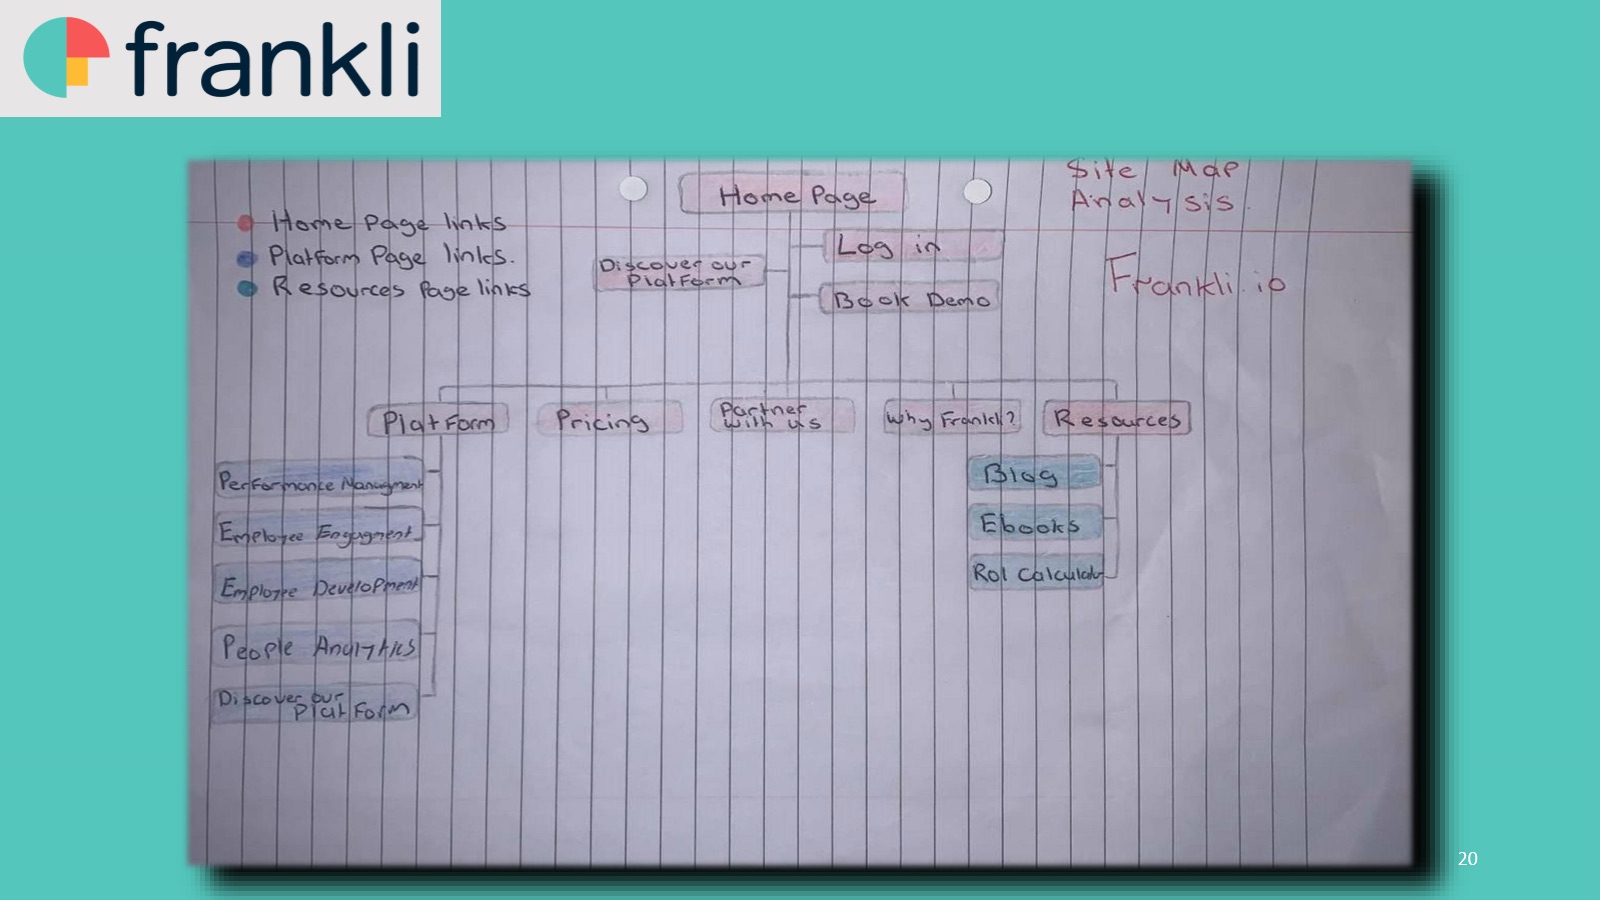 frankli
Site Map
Analysis.
Frankli.io
Home Page links
Platform Page links.
Resources Page links
Home Page
Log in
Discover our
Platform
Book Demo
Platform
Pricing
Partner
with us
Why Frankli?
Resources
Performance Managment
Employee Engagment
Employee Development
People Analytics
Discover our
Platform
Blog
Ebooks
RoI Calculator
20